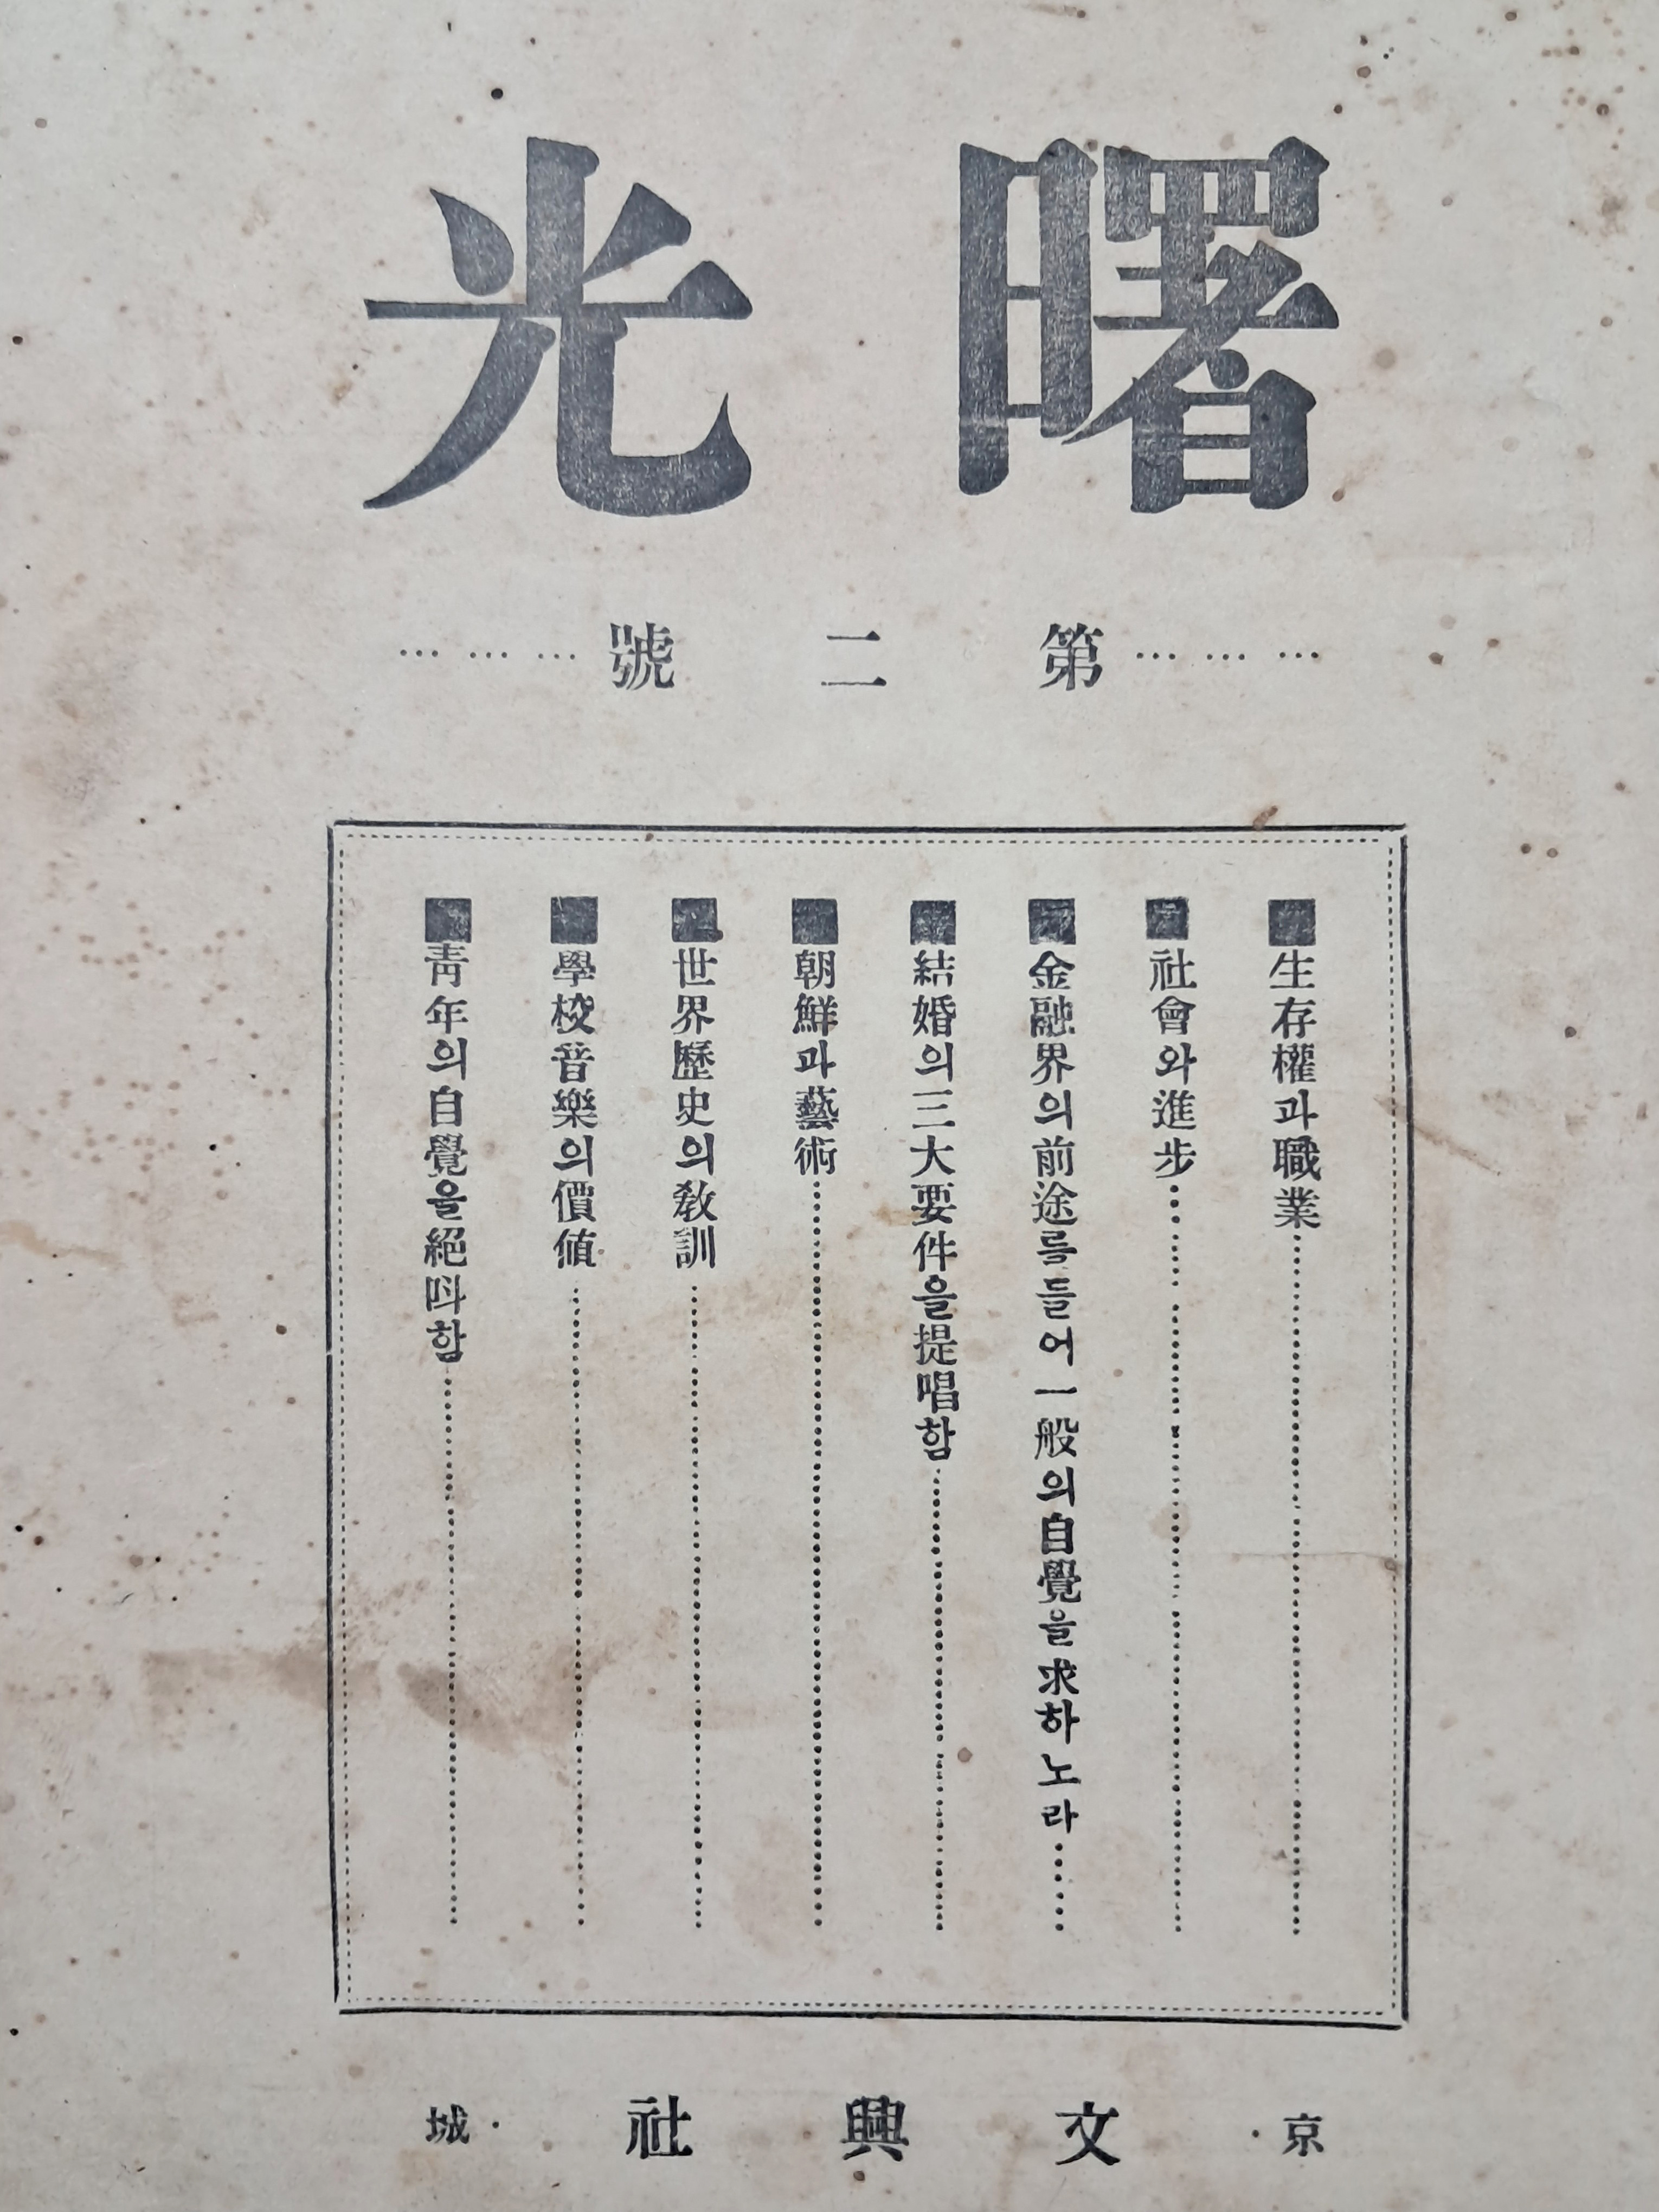 曙光
……… 第二號 ………
■生存權과職業
■社會와進步
■金融界의前途를들어一般의自覺을求하노라
■結婚의三大要件을提唱함
■朝鮮과藝術
■世界歷史의敎訓
■學校音樂의價値
■靑年의自覺을絕叫함
京・文興社・城